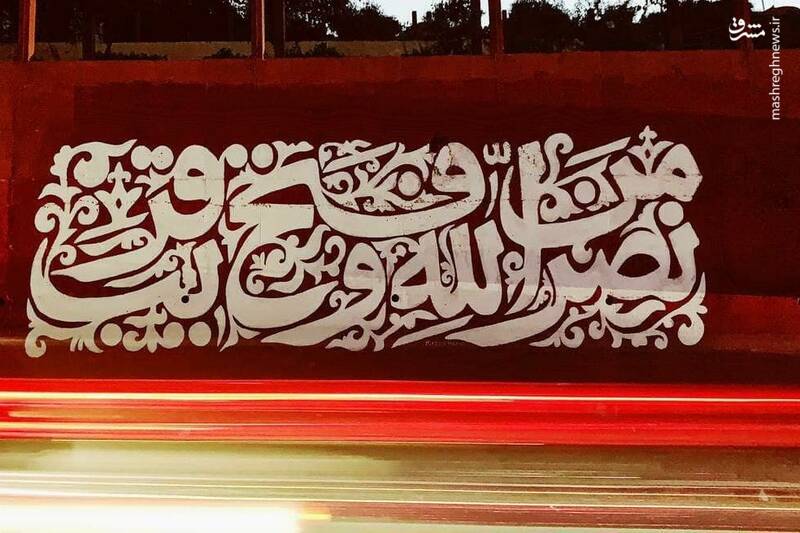 نصر من الله وفتح قريب
مشرق
mashreghnews.ir